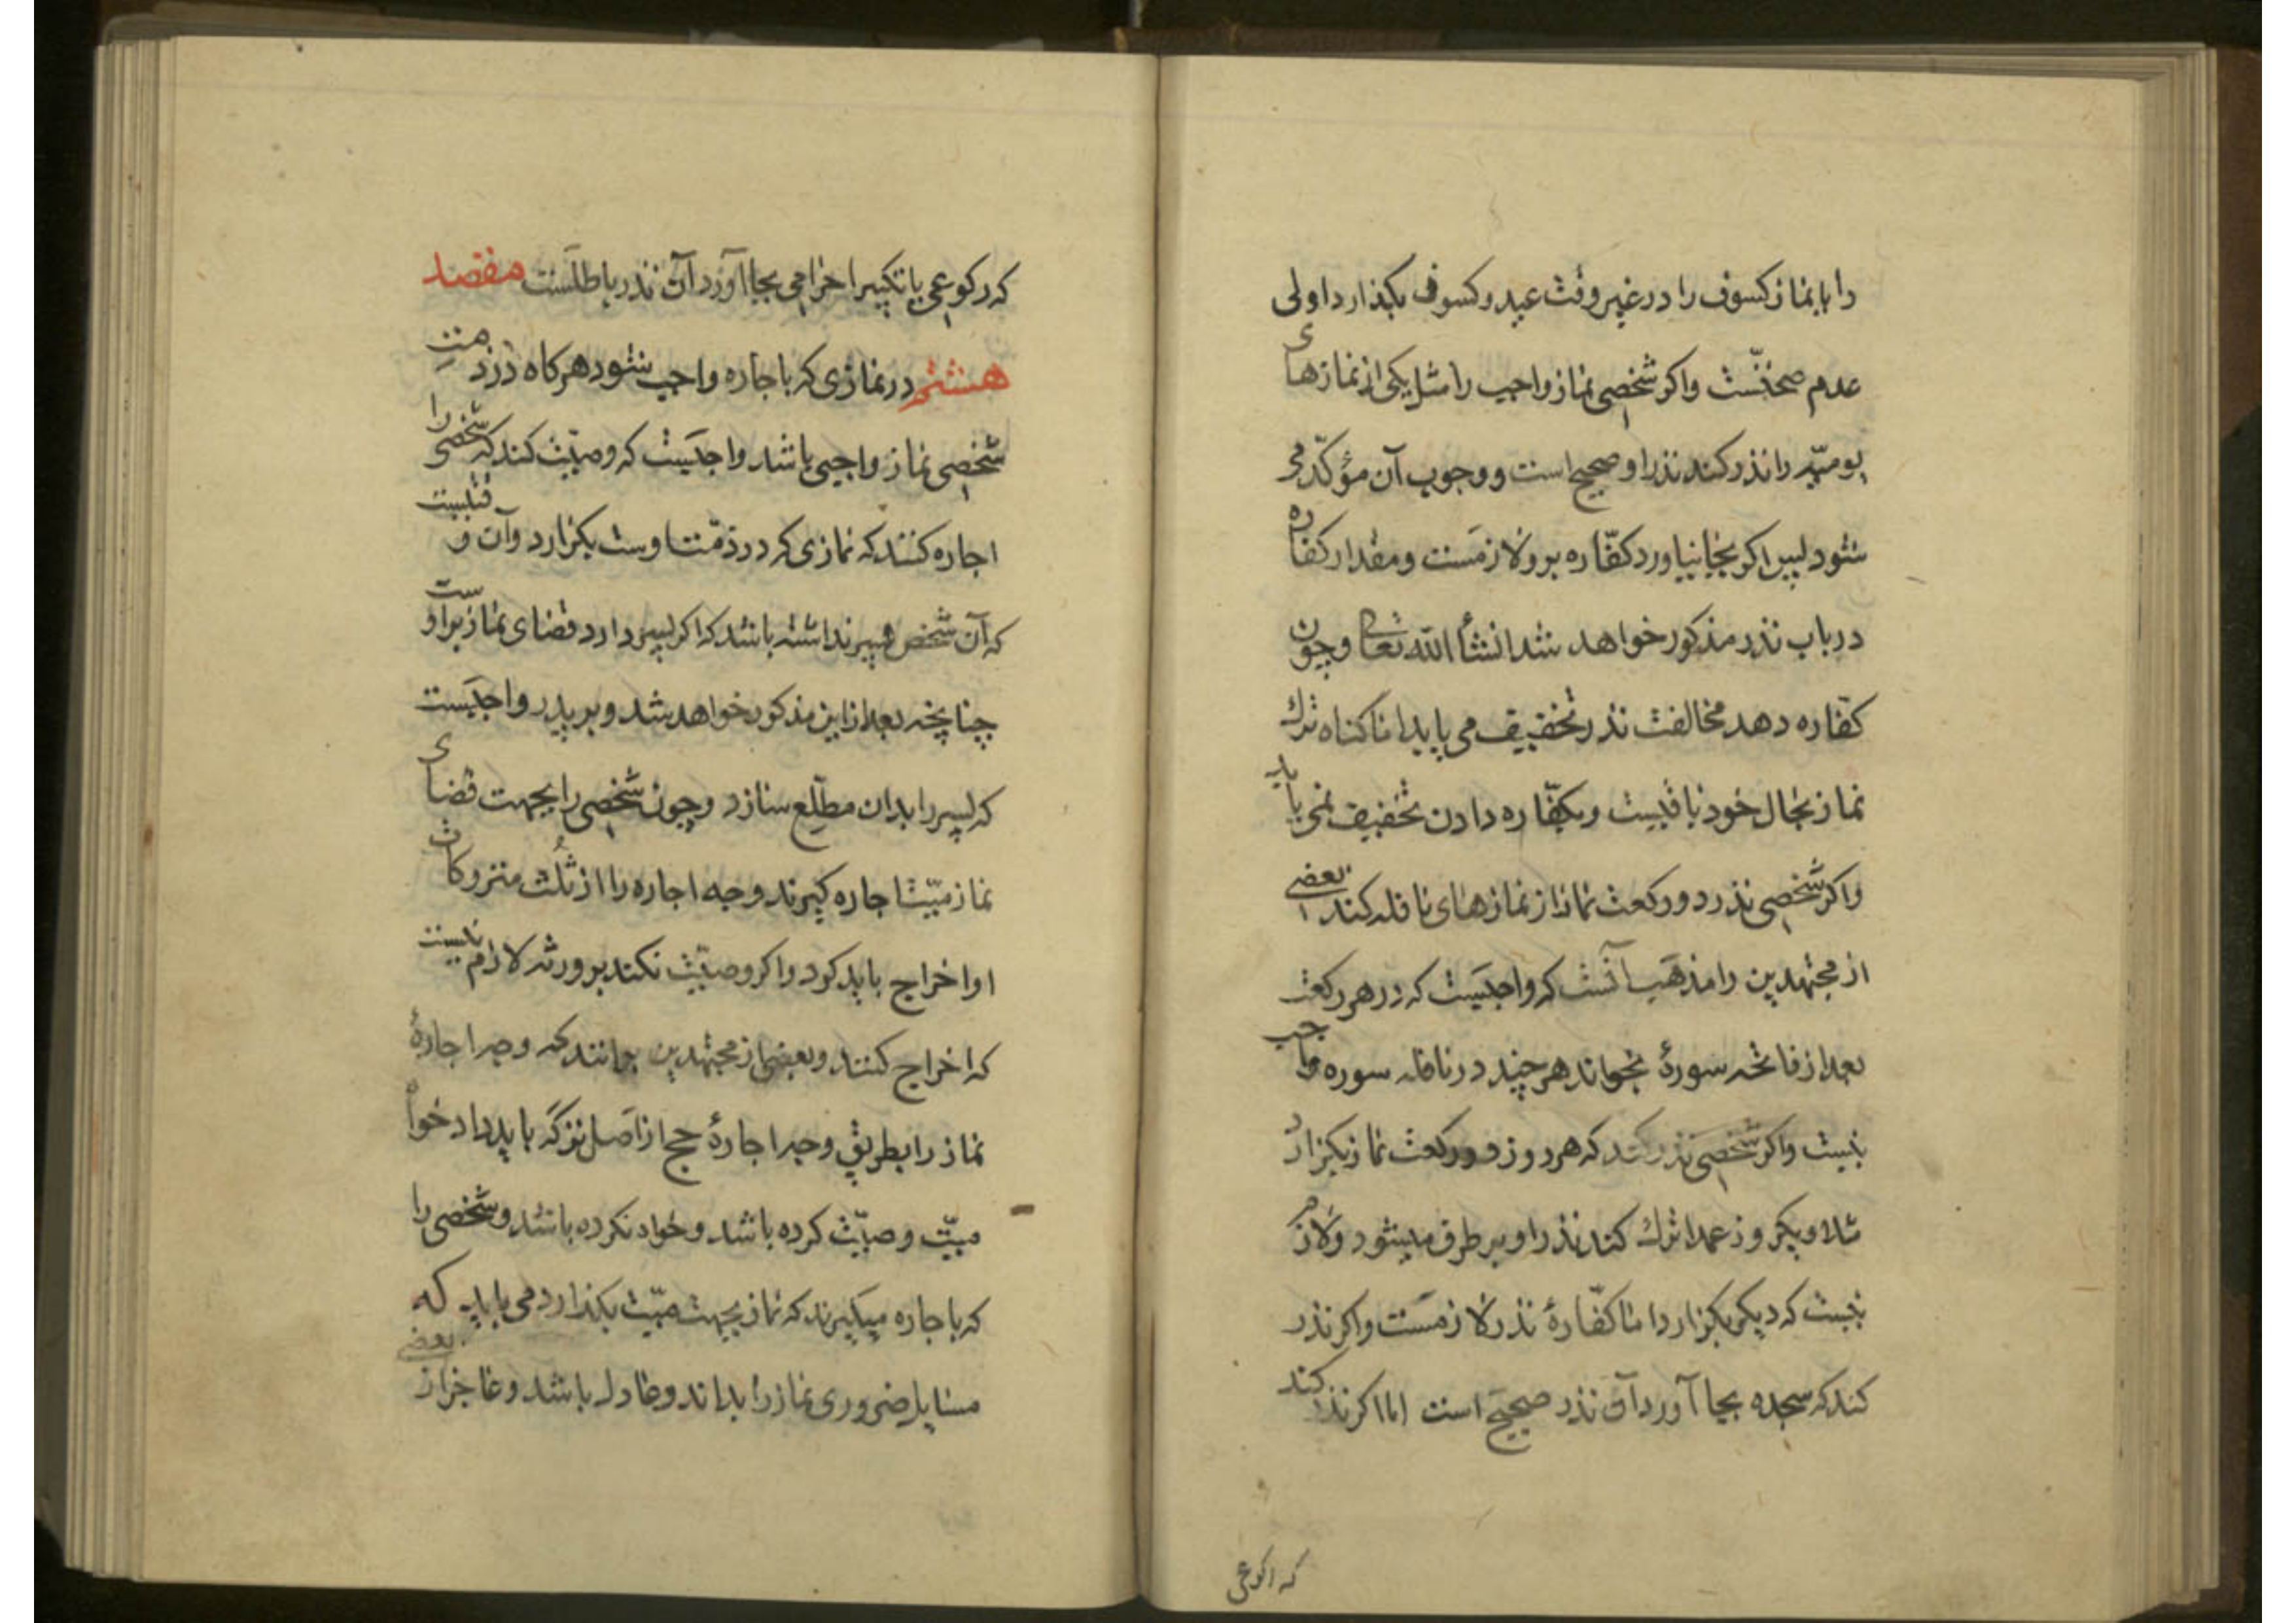 را یا نماز کسوف را در غیر وقت عید و کسوف بگذارد اولی
عدم صحتّست واکر شخصی نماز واجب را مثل یکی از نمازهای
یومیّه را نذر کند نذر او صحیح است و وجوب آن مؤکّد می
شود پس اکر بجا نیاورد کفّاره برو لازمَست و مقدار کفاره
در باب نذر مذکور خواهد شد انشأ الله تعالی و چون
کفّاره دهد مخالفت نذر تخفیف می یابد اما کناه ترك
نماز بحال خود باقیست و بکفّاره دادن تخفیف نمی یابد
واکر شخصی نذر دو رکعت نماز از نمازهای نافله کند بعضی
از مجتهدین را مذهَب آنست که واجبَست که در هر رکعت
بعد از فاتحه سورهٔ بخواند هرچند در نافله سوره واجب
نیست واکر شخصی نذر کند که هر روز دو رکعت نماز بکزارد
مثلا و یکروز عمدا ترك کند نذر او بر طرف میشود و لازم
نیست که دیکر بکزارد اما کفّارهٔ نذر لازمَست واکر نذر
کند که سجده بجا آورد آن نذر صحیح است اما اکر نذر کند
که رکوعی
که رکوعی یا تکبیر احرامی بجا آورد آن نذر باطلَست مقصد
هشتم در نمازی که باجاره واجب شود هرکاه در ذمت
شخصی نماز واجبی باشد واجبَست که وصیّت کند که شخصی را
اجاره کنند که نمازی که در ذمّت اوست بکزارد و آن وقتیست
که آن شخص پسر نداشته باشد که اکر پسر دارد قضای نماز بر اوست
چنانچه بعد از این مذکور خواهد شد و بر پدر واجبَست
که پسر را بدان مطلّع سازد و چون شخصی را بجهت قضای
نماز میّت اجاره کیرند وجه اجاره را از ثُلُث متروکات
او اخراج باید کرد و اکر وصیّت نکند بر ورثه لازم نیست
که اخراج کنند و بعضی از مجتهدین برانند که وجه اجارهٔ
نماز را بطریق وجه اجارهٔ حج از اصل ترکَه باید داد خواه
میّت وصیّت کرده باشد و خواه نکرده باشد و شخصی را
که باجاره میکیرند که نماز بجهت میّت بکذارد می باید که
مسایل ضروری نماز را بداند و عادل باشد و عاجز از بعضی